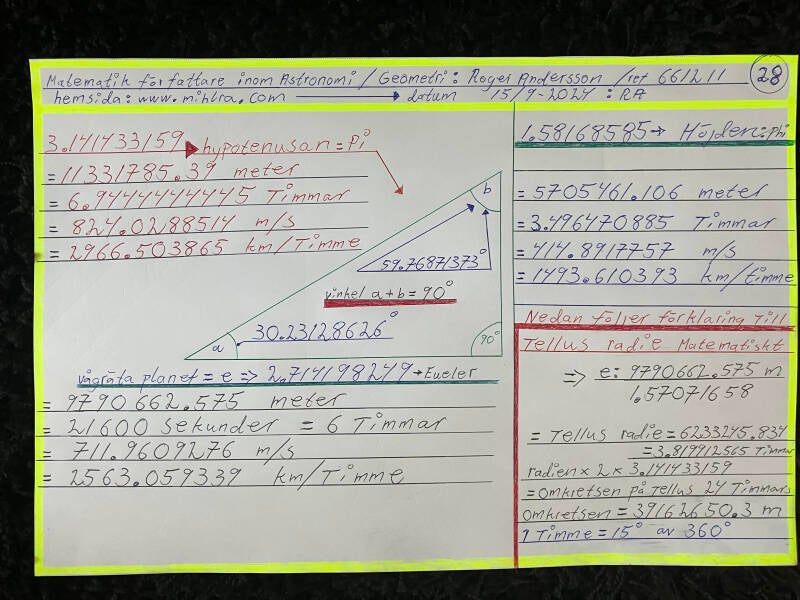 Matematik författare inom Astronomi / Geometri: Roger Andersson / ref 661211
28
hemsida: www.mihbra.com → datum 15/9-2024 : RA
3.141433159 ▶ hypotenusan = Pi
= 11331785.39 meter
= 6.9444444445 Timmar
= 824.0288514 m/s
= 2966.503865 km/Timme
b
59.76871373°
vinkel a + b = 90°
30.23128626°
a
90°
vågräta planet = e => 2.714198249 → Eueler
= 9790662.575 meter
= 21600 sekunder = 6 Timmar
= 711.9609276 m/s
= 2563.059339 km/Timme
1.58168585 → Höjden: Phi
= 5705461.106 meter
= 3.496470885 Timmar
= 414.8917757 m/s
= 1493.610393 km/timme
Nedan följer förklaring Till
Tellus radie Matematiskt
=> e: 9790662.575 m
1.57071658
= Tellus radie = 6233245.834
= 3.819912565 Timmar
radien x 2 x 3.141433159
= omkretsen på Tellus 24 Timmars
omkretsen = 39162650.3 m
1 Timme = 15° av 360°